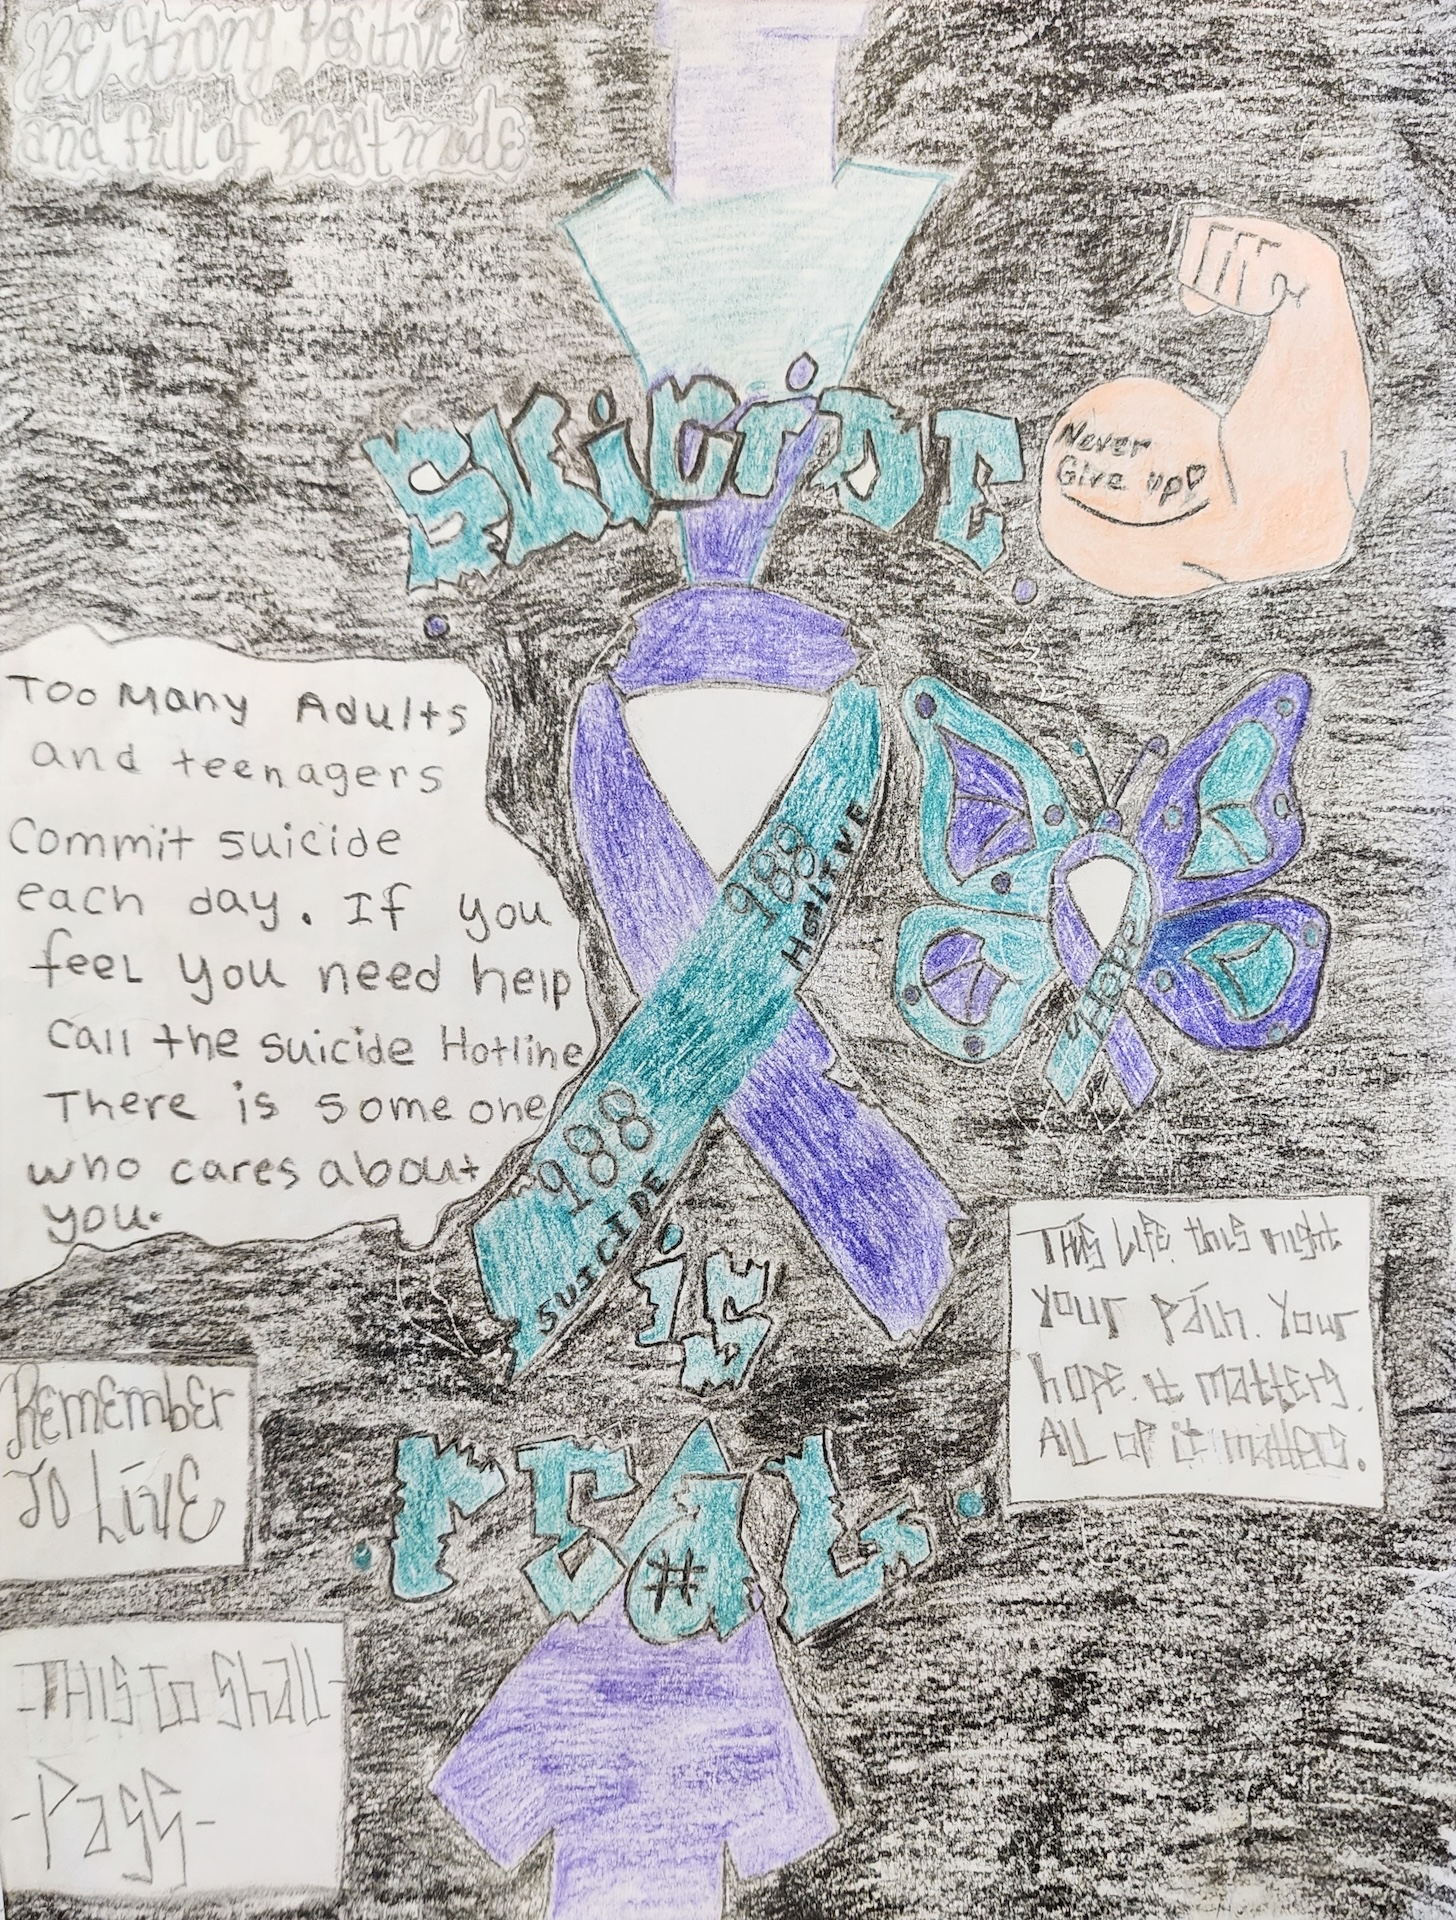 Be Strong Positive
and full of Beast mode
SUiCiDE
Never
Give up
Too Many Adults
and teenagers
Commit suicide
each day. If you
feel you need help
Call the suicide Hotline
There is someone
who cares about
you.
988
HOTLINE
988
SUICIDE
"HOPE"
is
rEaL
#
Remember
To Live
THIS LIFE. this night
Your pain. Your
hope. it matters.
ALL of it matters.
-THIS to Shall-
-Pass-